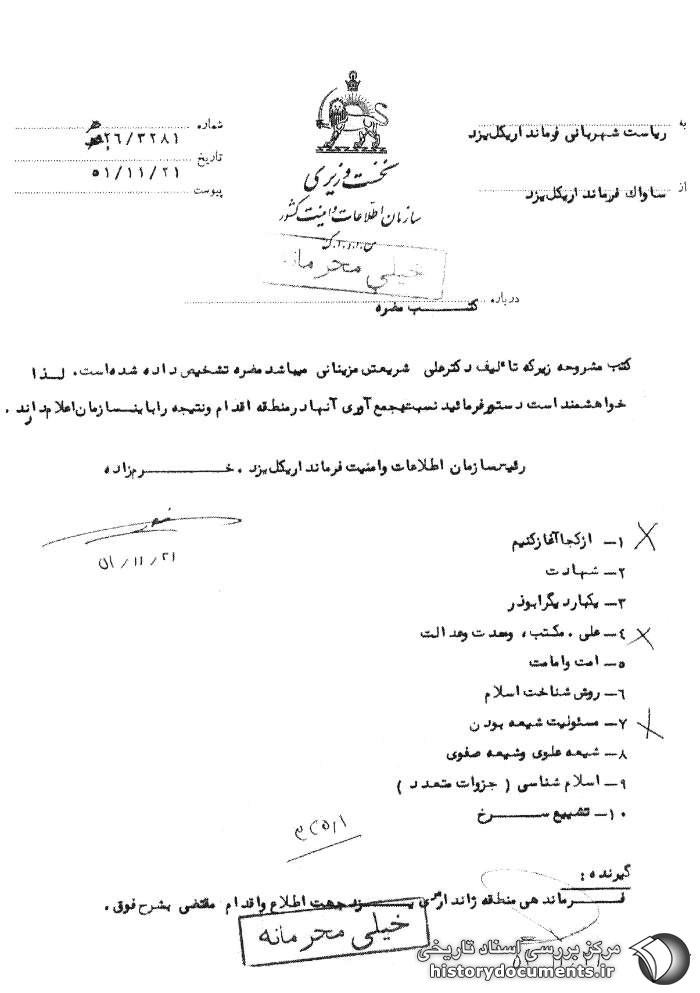 به ریاست شهربانی فرمانداریکل یزد
از ساواک فرمانداریکل یزد
نخست وزیری
سازمان اطلاعات و امنیت کشور
س.ا.و.ا.ک
شماره ۳۲۸۱/
تاریخ ۵۱/۱۱/۲۱
پیوست
خیلی محرمانه
درباره کتب مضره
کتب مشروحه زیر که تألیف دکتر علی شریعتی مزینانی میباشد مضره تشخیص داده شده است. لذا
خواهشمند است دستور فرمائید نسبت بجمع آوری آنها در منطقه اقدام و نتیجه را باین سازمان اعلام دارند.
رئیس سازمان اطلاعات و امنیت فرمانداریکل یزد. خرم زاده
۵۱/۱۱/۲۱
۱- از کجا آغاز کنیم
۲- شهادت
۳- یکبار دیگر ابوذر
۴- علی. مکتب، وحدت وعدالت
۵- امت وامامت
۶- روش شناخت اسلام
۷- مسئولیت شیعه بودن
۸- شیعه علوی وشیعه صفوی
۹- اسلام شناسی ( جزوات متعدد )
۱۰- تشییع سرخ
گیرنده:
فرماندهی منطقه ژاندارمری یزد جهت اطلاع واقدام مقتضی بشرح فوق.
خیلی محرمانه
مرکز بررسی اسناد تاریخی
historydocuments.ir